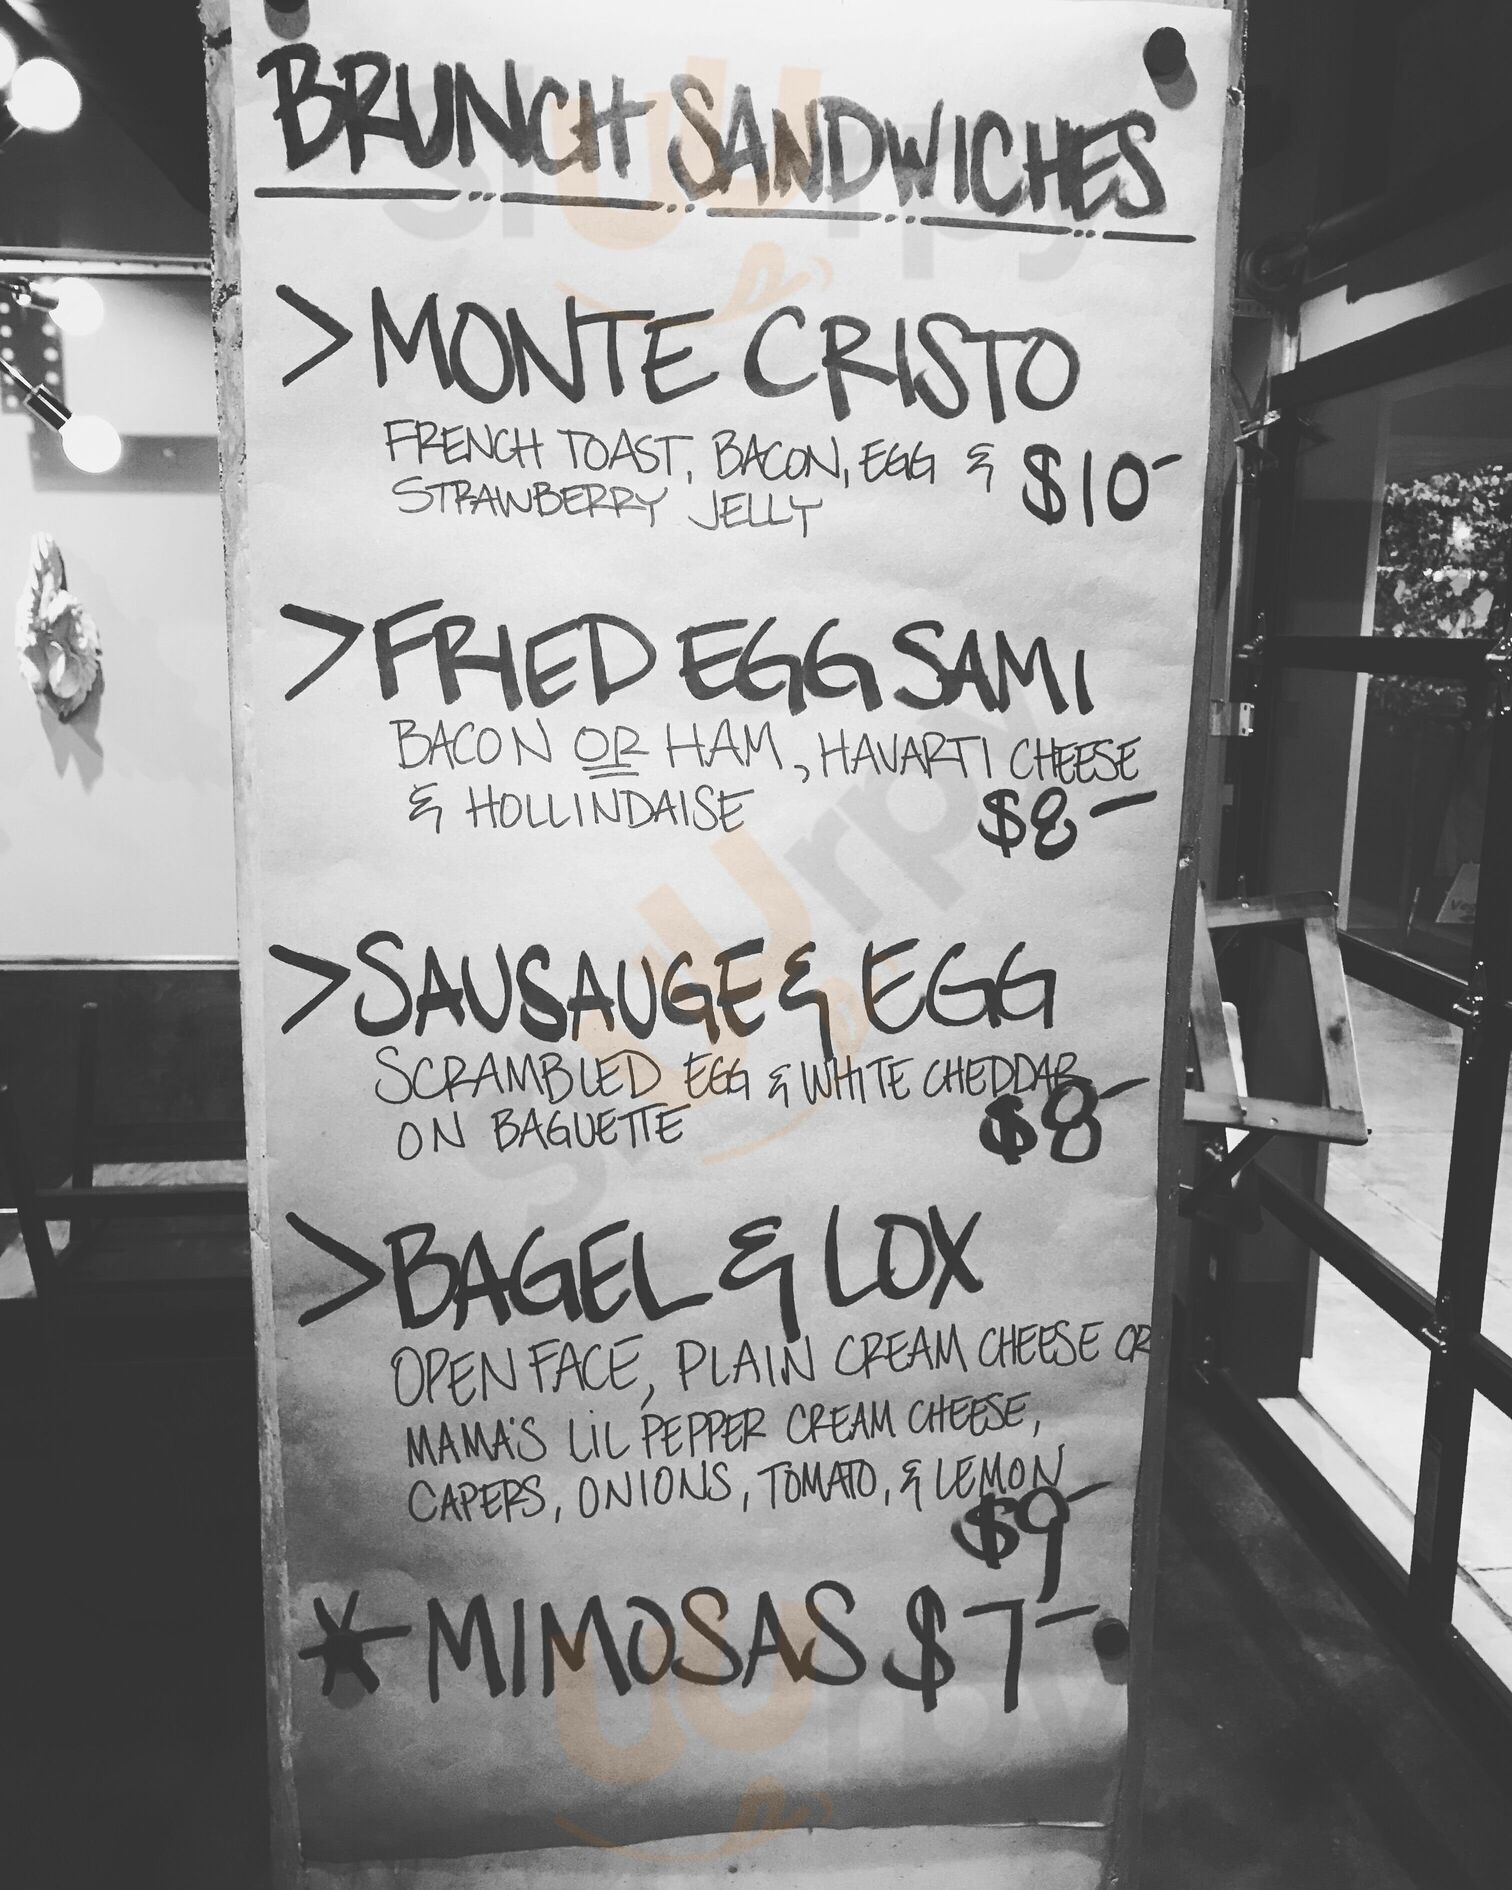 BRUNCH SANDWICHES
> MONTE CRISTO
FRENCH TOAST, BACON, EGG &
STRAWBERRY JELLY $10-
> FRIED EGG SAMI
BACON OR HAM, HAVARTI CHEESE
& HOLLINDAISE $8-
> SAUSAUGE & EGG
SCRAMBLED EGG & WHITE CHEDDAR
ON BAGUETTE $8-
> BAGEL & LOX
OPEN FACE, PLAIN CREAM CHEESE OR
MAMA'S LiL PEPPER CREAM CHEESE,
CAPERS, ONIONS, TOMATO, & LEMON
$9-
* MIMOSAS $7-
slurpy
slurpy
slurpy